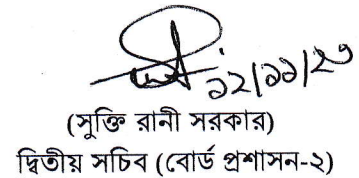 ১২/১১/২৩
(সুক্তি রানী সরকার)
দ্বিতীয় সচিব (বোর্ড প্রশাসন-২)